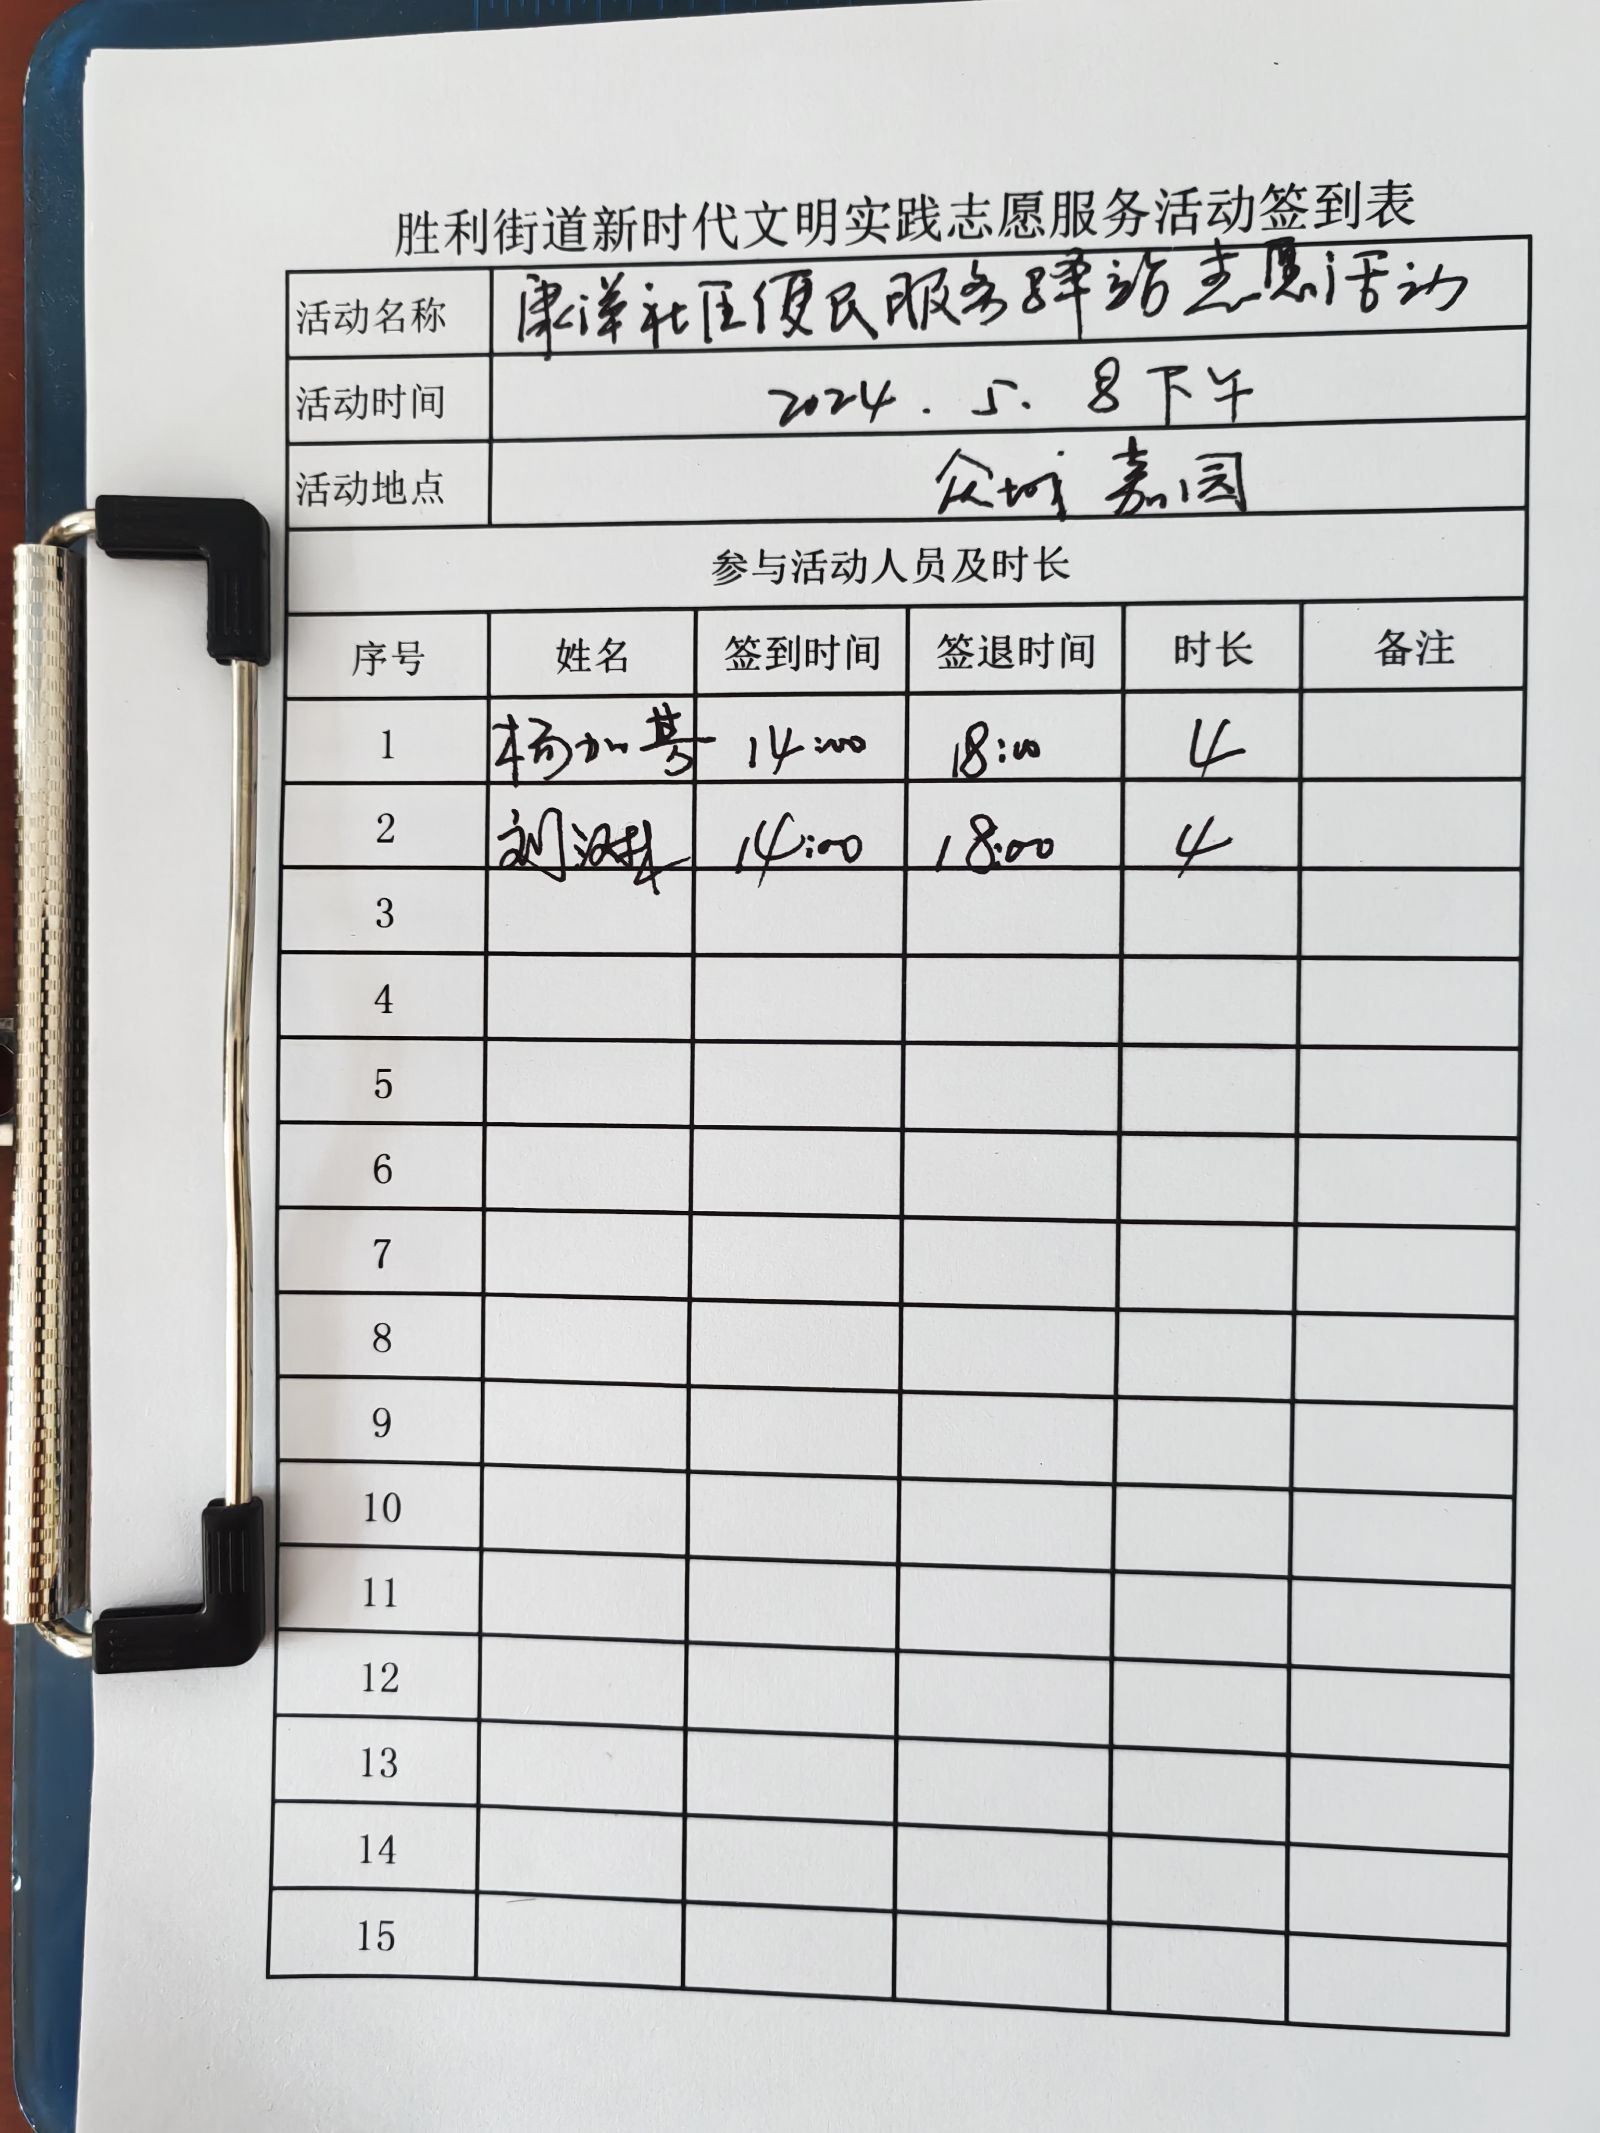 胜利街道新时代文明实践志愿服务活动签到表
活动名称 康洋社区便民服务驿站志愿活动
活动时间 2024.5.8下午
活动地点 众城嘉园
参与活动人员及时长
序号 姓名 签到时间 签退时间 时长 备注
1 杨加 14:00 18:00 4
2 刘汉林 14:00 18:00 4
3
4
5
6
7
8
9
10
11
12
13
14
15